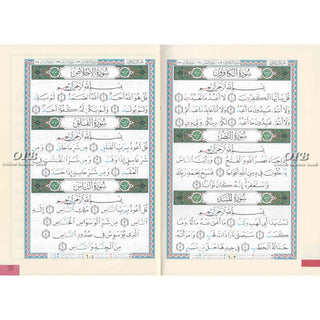 سُورَةُ الكَافِرُونَ
بِسْمِ اللَّهِ الرَّحْمَٰنِ الرَّحِيمِ
قُلْ يَٰٓأَيُّهَا ٱلْكَٰفِرُونَ ١ لَآ أَعْبُدُ مَا تَعْبُدُونَ ٢
وَلَآ أَنتُمْ عَٰبِدُونَ مَآ أَعْبُدُ ٣ وَلَآ أَنَا۠ عَابِدٌ مَّا عَبَدتُّمْ ٤
وَلَآ أَنتُمْ عَٰبِدُونَ مَآ أَعْبُدُ ٥ لَكُمْ دِينُكُمْ وَلِىَ دِينِ ٦
سُورَةُ النَّصْرِ
بِسْمِ اللَّهِ الرَّحْمَٰنِ الرَّحِيمِ
إِذَا جَآءَ نَصْرُ ٱللَّهِ وَٱلْفَتْحُ ١ وَرَأَيْتَ ٱلنَّاسَ
يَدْخُلُونَ فِى دِينِ ٱللَّهِ أَفْوَاجًا ٢ فَسَبِّحْ بِحَمْدِ رَبِّكَ
وَٱسْتَغْفِرْهُ إِنَّهُۥ كَانَ تَوَّابًۢا ٣
سُورَةُ المَسَدِ
بِسْمِ اللَّهِ الرَّحْمَٰنِ الرَّحِيمِ
تَبَّتْ يَدَآ أَبِى لَهَبٍ وَتَبَّ ١ مَآ أَغْنَىٰ عَنْهُ مَالُهُۥ وَمَا
كَسَبَ ٢ سَيَصْلَىٰ نَارًا ذَاتَ لَهَبٍ ٣ وَٱمْرَأَتُهُۥ
حَمَّالَةَ ٱلْحَطَبِ ٤ فِى جِيدِهَا حَبْلٌ مِّن مَّسَدٍۭ ٥
٦٠٣
سُورَةُ الإِخْلَاصِ
بِسْمِ اللَّهِ الرَّحْمَٰنِ الرَّحِيمِ
قُلْ هُوَ ٱللَّهُ أَحَدٌ ١ ٱللَّهُ ٱلصَّمَدُ ٢ لَمْ يَلِدْ
وَلَمْ يُولَدْ ٣ وَلَمْ يَكُن لَّهُۥ كُفُوًا أَحَدٌۢ ٤
سُورَةُ الفَلَقِ
بِسْمِ اللَّهِ الرَّحْمَٰنِ الرَّحِيمِ
قُلْ أَعُوذُ بِرَبِّ ٱلْفَلَقِ ١ مِن شَرِّ مَا خَلَقَ ٢ وَمِن
شَرِّ غَاسِقٍ إِذَا وَقَبَ ٣ وَمِن شَرِّ ٱلنَّفَّٰثَٰتِ فِى
ٱلْعُقَدِ ٤ وَمِن شَرِّ حَاسِدٍ إِذَا حَسَدَ ٥
سُورَةُ النَّاسِ
بِسْمِ اللَّهِ الرَّحْمَٰنِ الرَّحِيمِ
قُلْ أَعُوذُ بِرَبِّ ٱلنَّاسِ ١ مَلِكِ ٱلنَّاسِ ٢ إِلَٰهِ
ٱلنَّاسِ ٣ مِن شَرِّ ٱلْوَسْوَاسِ ٱلْخَنَّاسِ ٤
ٱلَّذِى يُوَسْوِسُ فِى صُدُورِ ٱلنَّاسِ ٥
مِنَ ٱلْجِنَّةِ وَٱلنَّاسِ ٦
٦٠٤
OIB
OIB